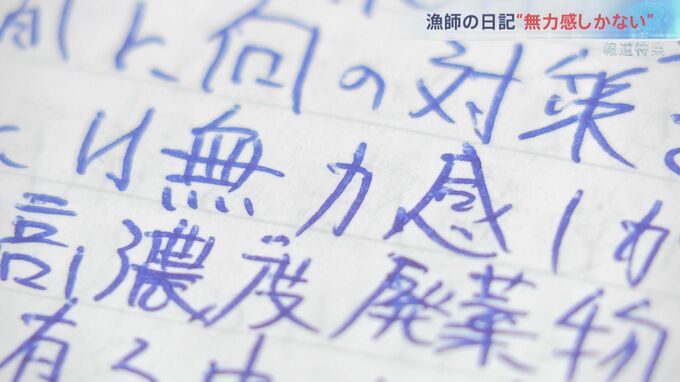 漁師の日記“無力感しかない”
報道特集
に何の対策
には無力感しか
高濃度廃棄物
有る中